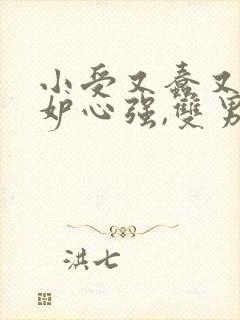 小受又蠢又
妒心强,雙男
洪七